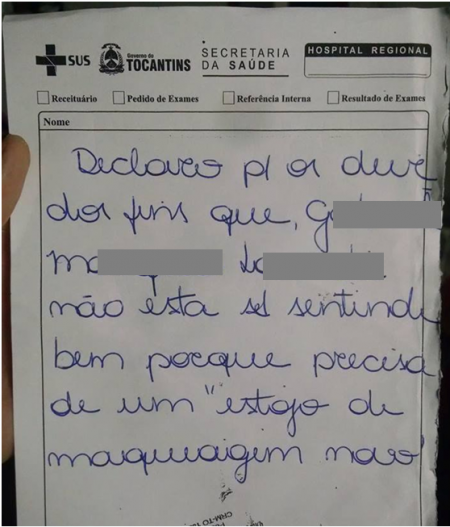 SUS
Governo do
TOCANTINS
SECRETARIA
DA SAÚDE
HOSPITAL REGIONAL
Receituário Pedido de Exames Referência Interna Resultado de Exames
Nome
Declaro p/ os devi
dos fins que, G
ma
não esta se sentindo
bem porque precisa
de um "estojo de
maquiagem novo"
CRM-TO